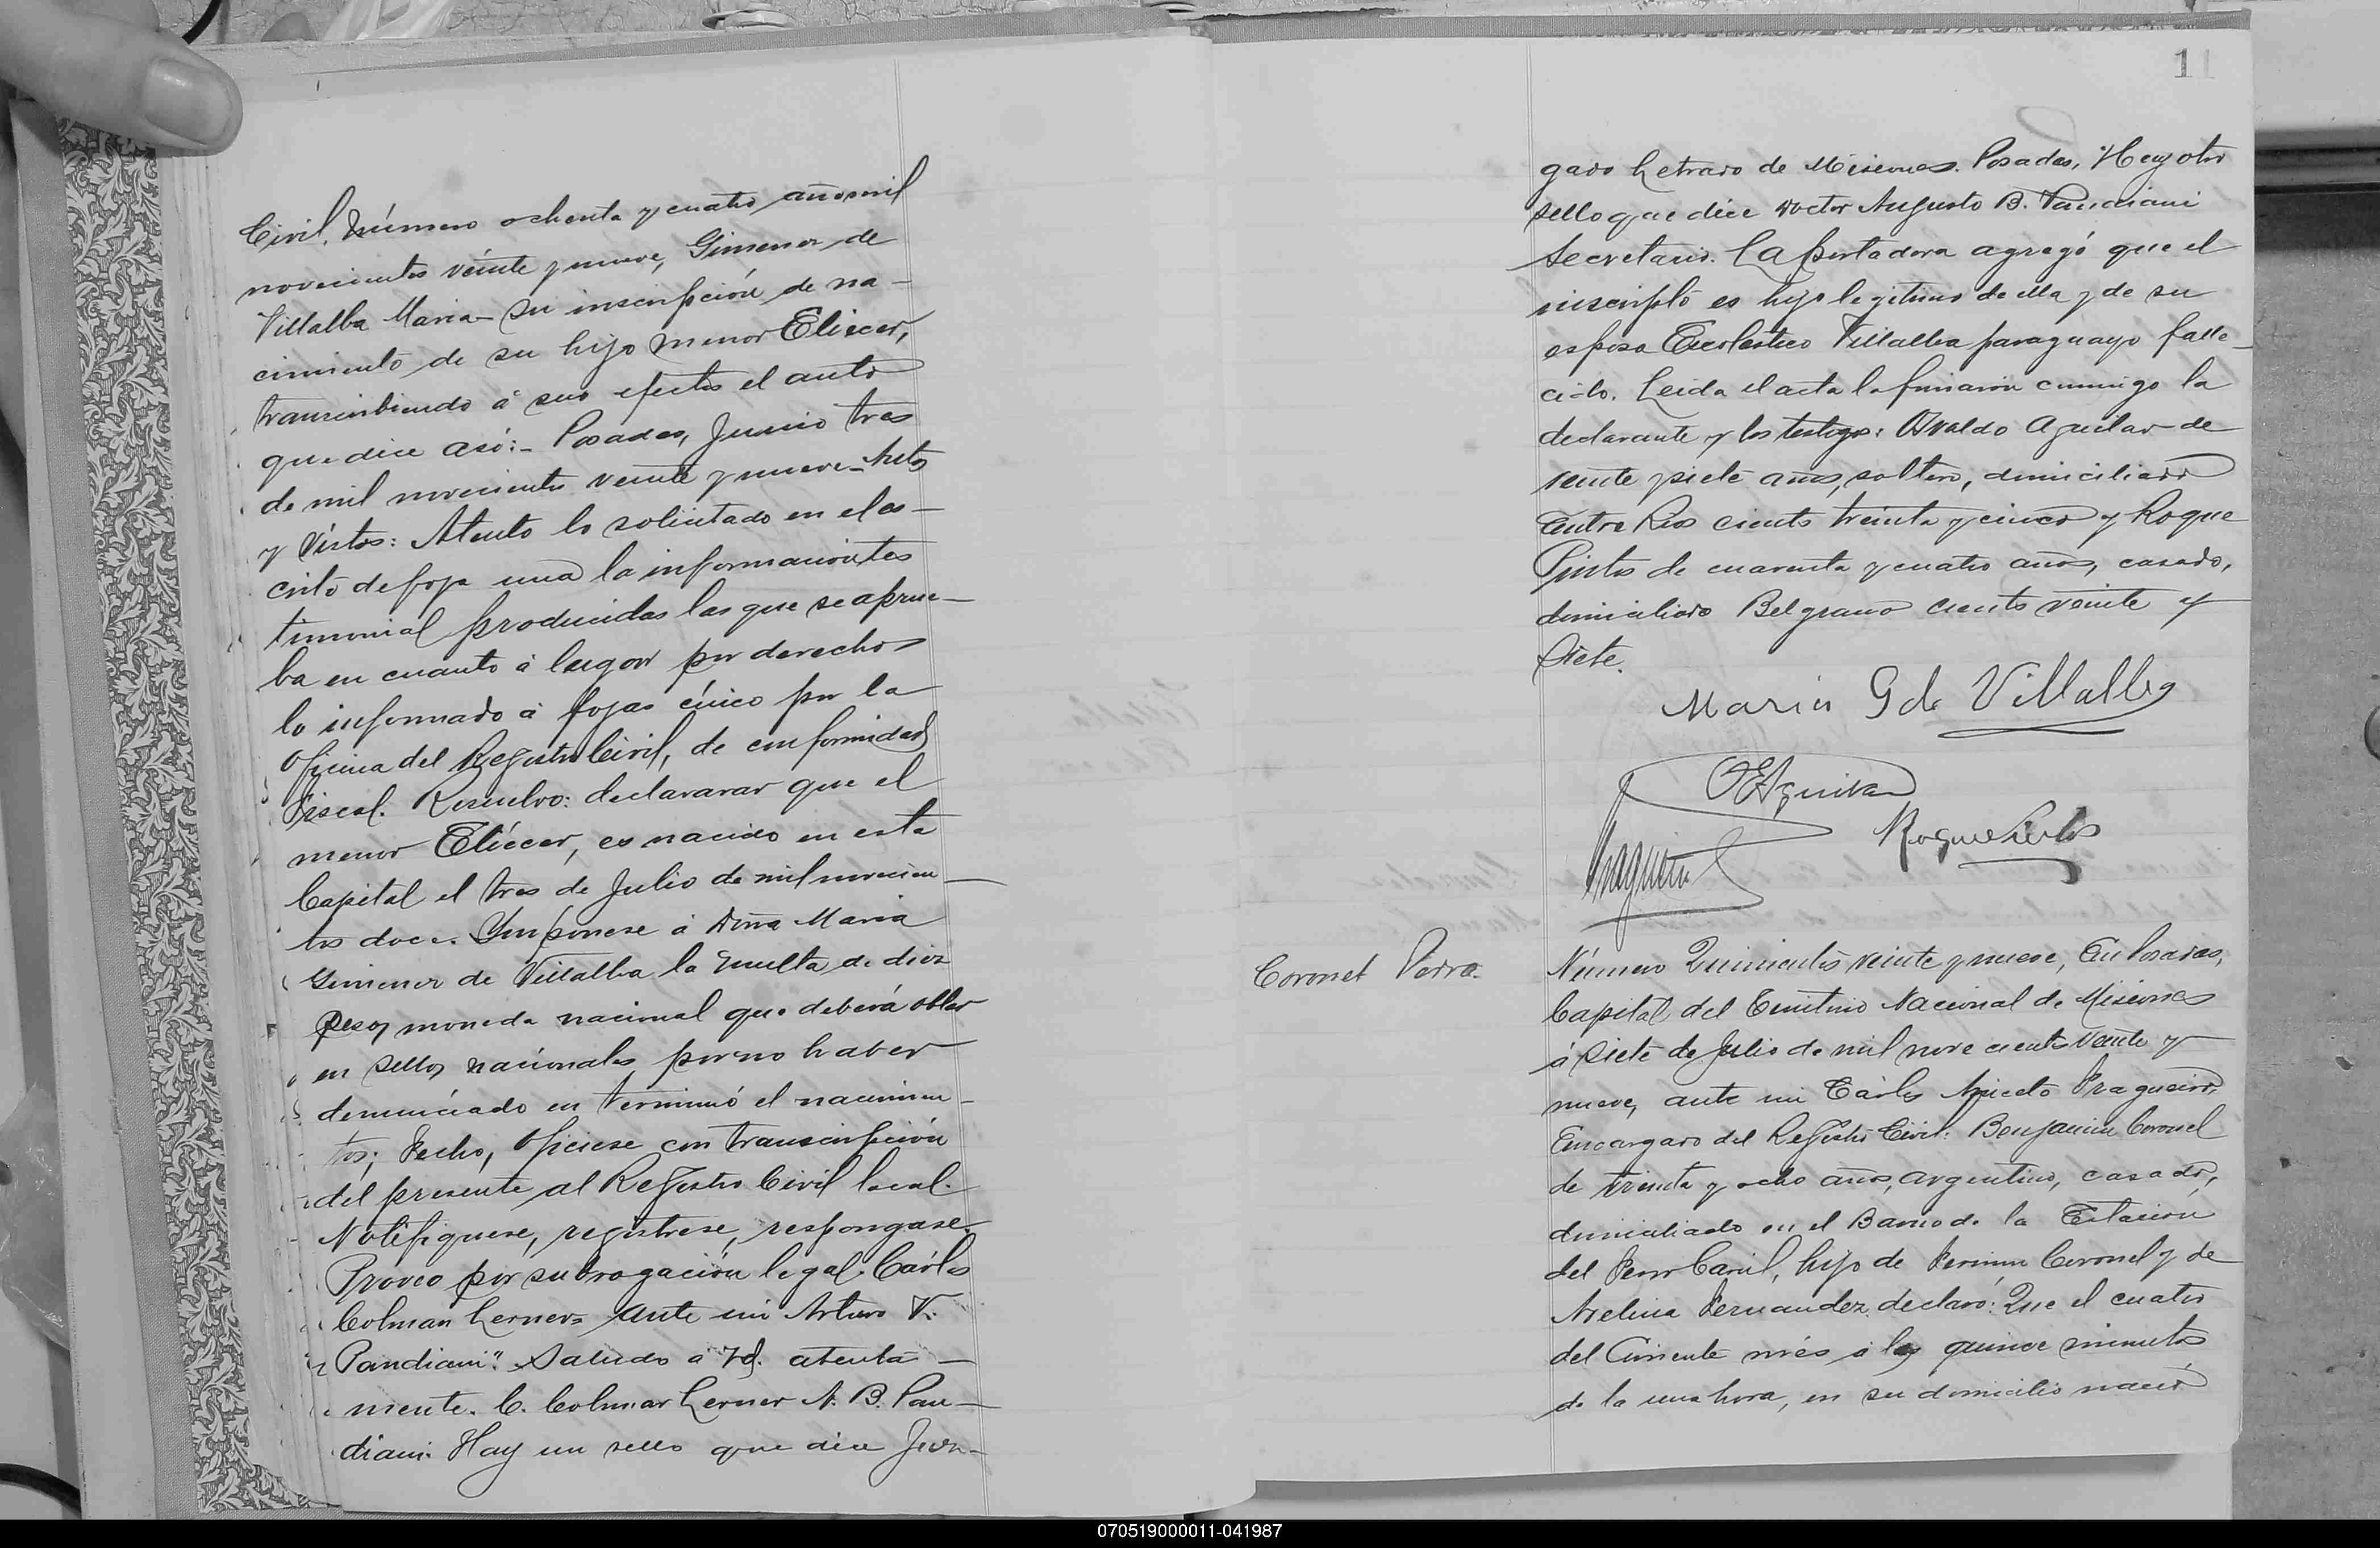 Civil, Número ochenta y cuatro, año mil
novecientos veinte y nueve, Gimenez de
Villalba Maria - su inscripción de na-
cimiento de su hijo menor Eliecer,
transcribiendo á sus efectos el auto
que dice así:- Posadas, Junio tres
de mil novecientos veinte y nueve - Autos
y Vistos: Atento lo solicitado en el es-
crito de foja una la información tes
timonial producidas las que se aprue-
ba en cuanto á lugar por derecho
lo informado á fojas cinco por la
Oficina del Registro Civil, de conformidad
Fiscal. Resuelvo: declararar que el
menor Eliécer, es nacido en esta
Capital el tres de Julio de mil novecien-
tos doce. Impónese á Doña Maria
Gimenez de Villalba la multa de diez
pesos moneda nacional que deberá oblar
en sellos nacionales por no haber
denunciado en términó el nacimien-
tos; Fecho, Ofíciese con transcripción
del presente al Registro Civil local.
Notifiquese, registrese, respongase.
Proveo por subrogación legal. Cárlos
Colman Lerner = Ante mi Arturo V.
Pandiani". Saludo á Vd. atenta-
mente. C. Colmar Lerner A. B. Pan-
diani. Hay un sello que dice Juz-
1
gado Letrado de Misiones. Posadas, Hay otro
sello que dice Doctor Augusto B. Pandiani
Secretario. La portadora agregó que el
inscripto es hijo legitimo de ella y de su
esposo Escolástico Villalba paraguayo falle-
cido. Leida el acta la firmaron conmigo la
declarante y los testigos: Osvaldo Aguilar de
veinte y siete años, soltero, domiciliado
Entre Rios ciento treinta y cinco y Roque
Pintos de cuarenta y cuatro años, casado,
domiciliado Belgrano ciento veinte y
siete.
Maria G de Villalba
O E Aguilar
Roque Pintos
Fragueiro
Coronel Pedro.
Número Quinientos veinte y nueve, En Posadas,
Capital del Territorio Nacional de Misiones
á siete de Julio de mil novecientos veinte y
nueve, ante mi Cárlos Aniceto Fragueiro,
Encargado del Registro Civil: Benjamin Coronel
de treinta y ocho años, argentino, casado,
domiciliado en el Barrio de la Estación
del Ferro Carril, hijo de Fermin Coronel y de
Avelina Fernandez, declaró: Que el cuatro
del Corriente més á las quince minutos
de la una hora, en su domicilio nació